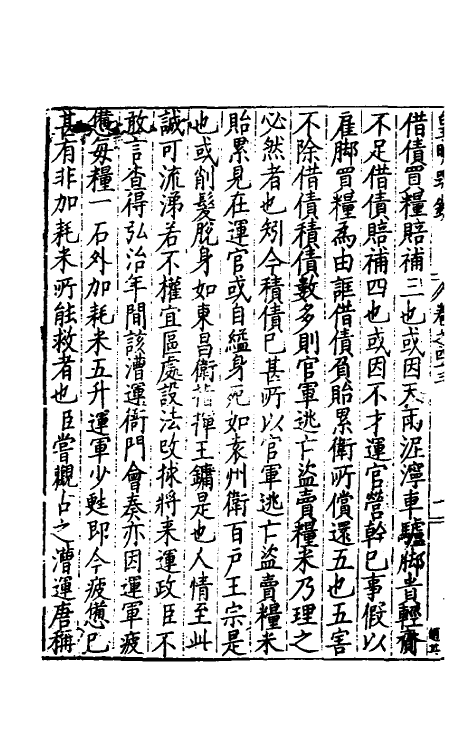 皇明疏鈔 卷之四十三
借債買糧賠補三也或因天雨泥濘車驢脚貴輕齎
不足借債賠補四也或因不才運官營幹已事假以
雇脚買糧為由誆借債負貽累衛所償還五也五害
不除借債積債數多則官軍逃亡盜賣糧米乃理之
必然者也矧今積債已甚所以官軍逃亡盜賣糧米
貽累見在運官或自縊身死如袁州衛百戶王宗是
也或削髮脫身如東昌衛指揮王鏞是也人情至此
誠可流涕若不權宜區處設法改捄將来運政臣不
敢言查得弘治年間該漕運衙門會奏亦因運軍疲
憊每糧一石外加耗米五升運軍少甦即今疲憊已
甚有非加耗米所能救者也臣嘗觀占之漕運唐稱